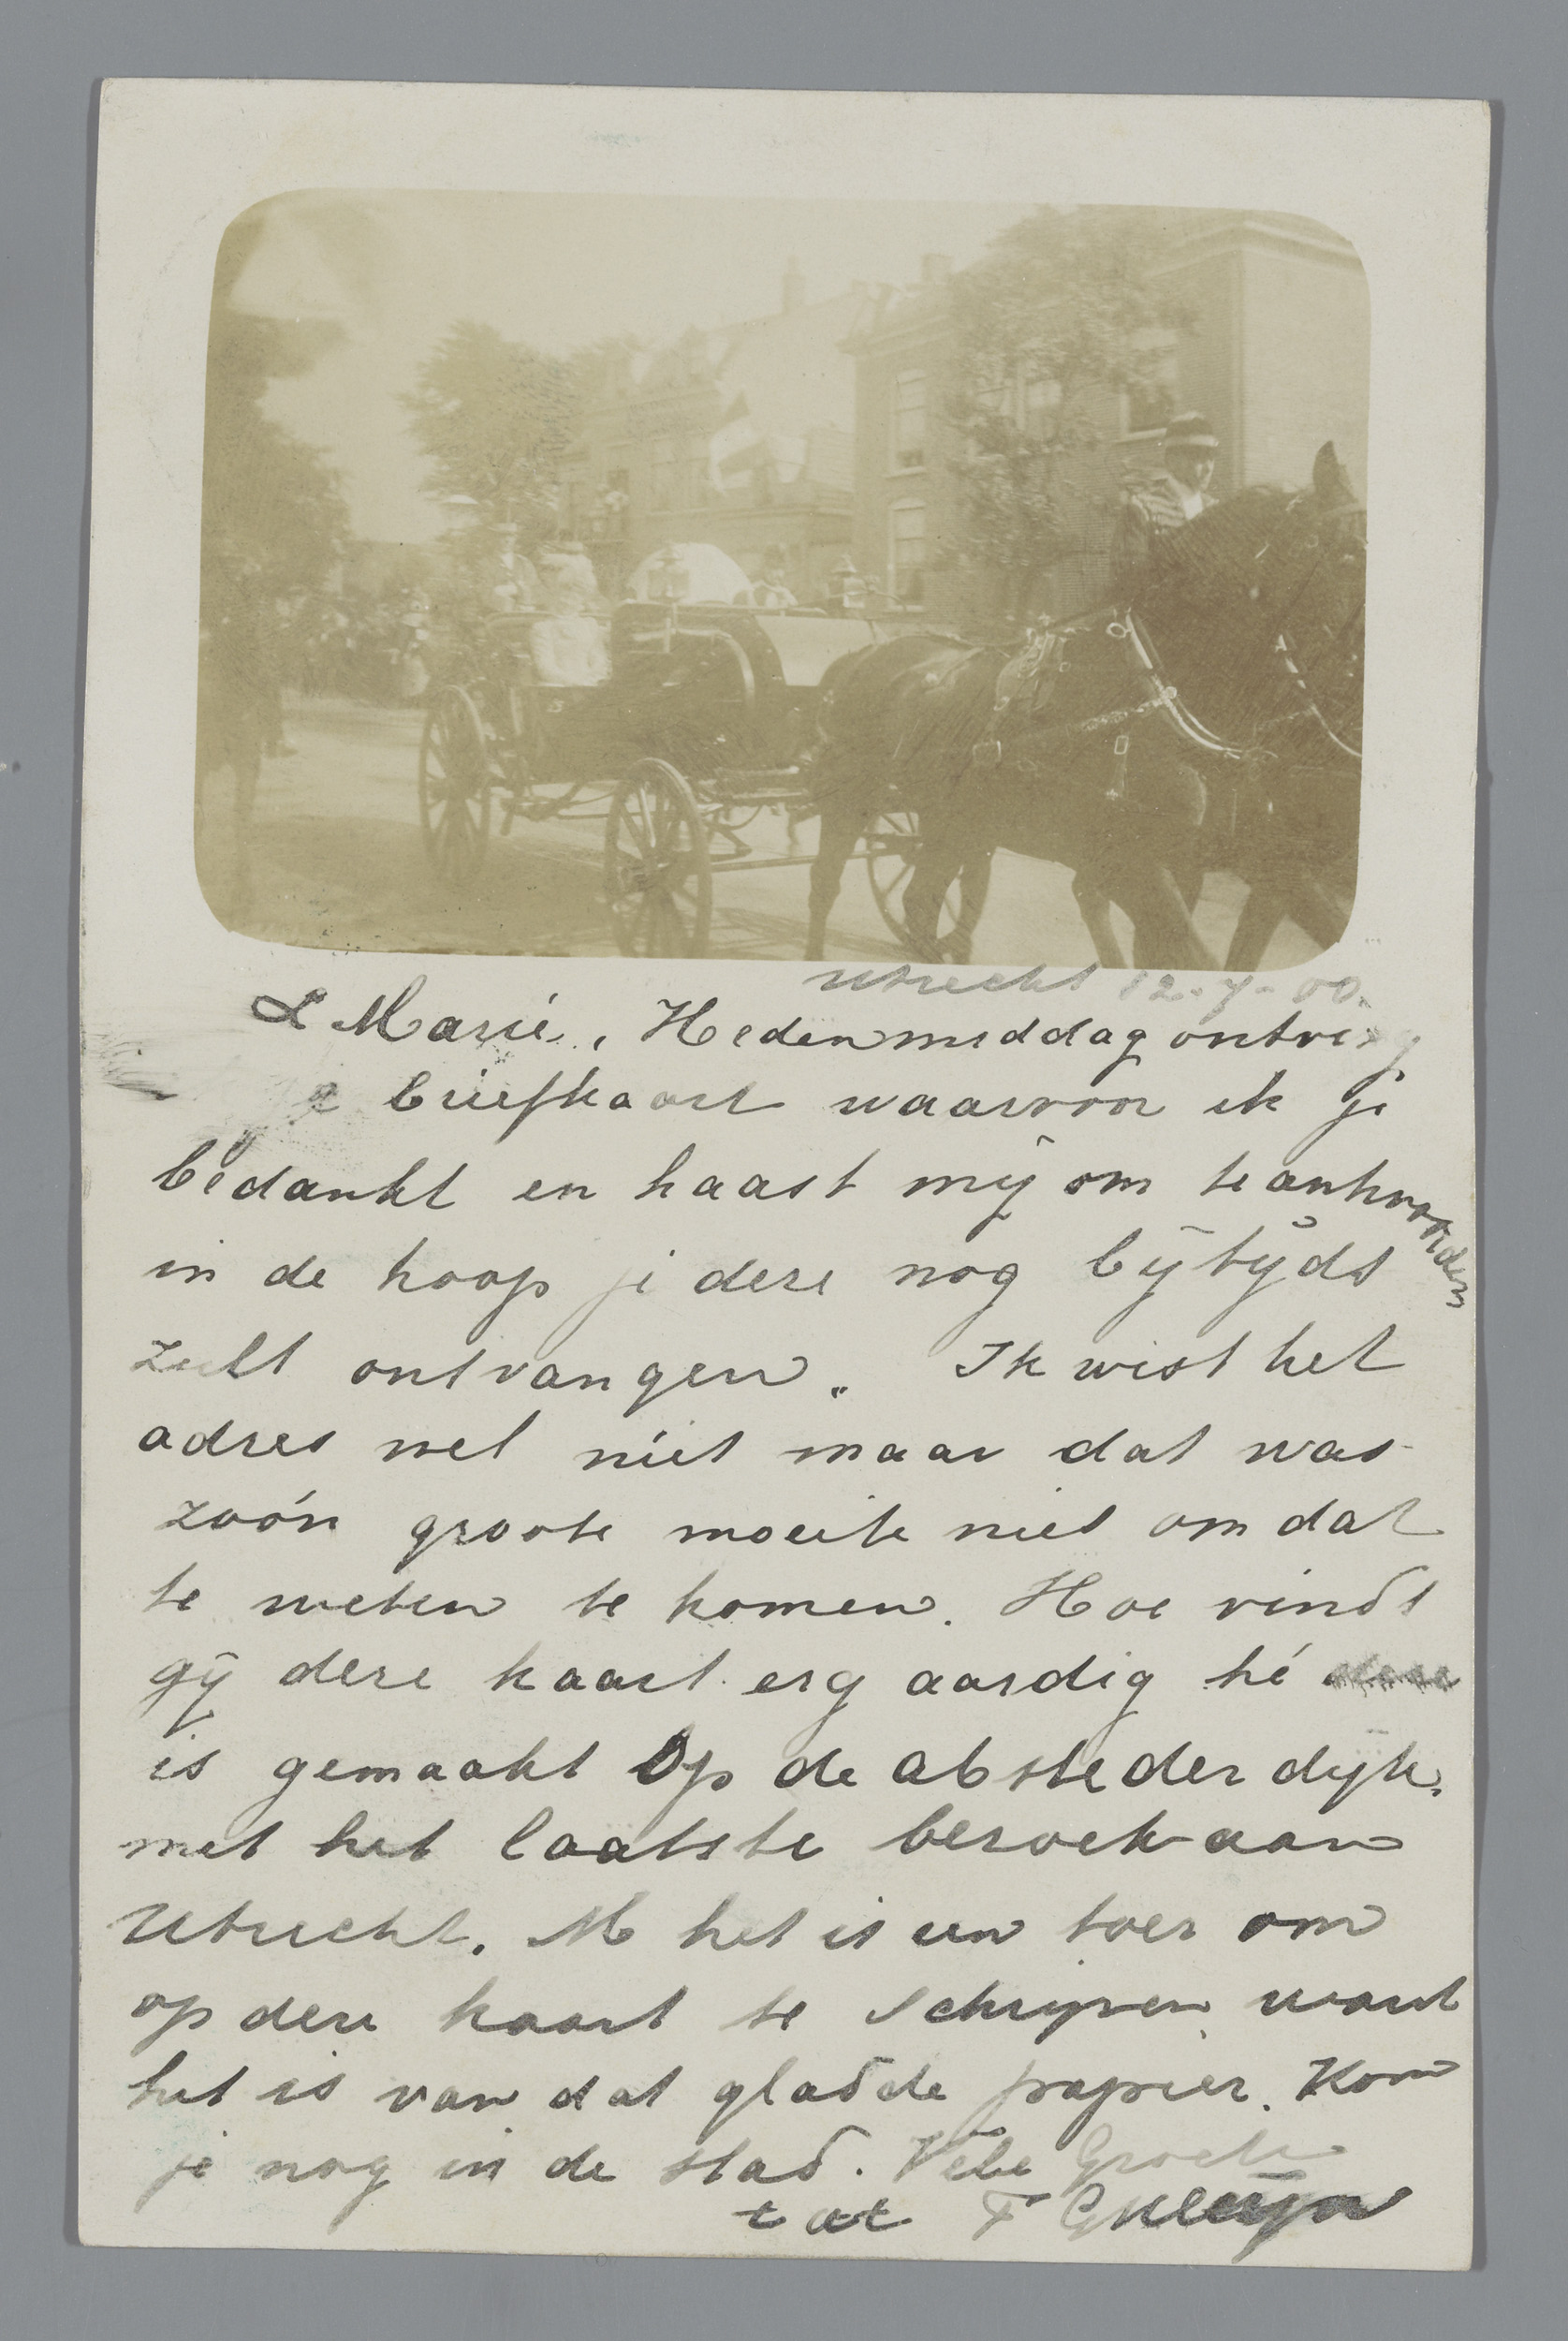 Utrecht 12-7-00.
L Marie, Hedenmiddag ontving
briefkaart waarvoor ik je
bedankt en haast mij om te antwoorden
in de hoop je deze nog bijtijds
zult ontvangen. Ik wist het
adres wel niet maar dat was
zoo'n groote moeite niet om dat
te weten te komen. Hoe vindt
gij deze kaart erg aardig hé
is gemaakt Op de absteder dijk.
met het laatste bezoek aan
Utrecht. M het is een toer om
op deze kaart te schrijven want
het is van dat gladde papier. Kom
je nog in de stad. Vele Groete
tat F